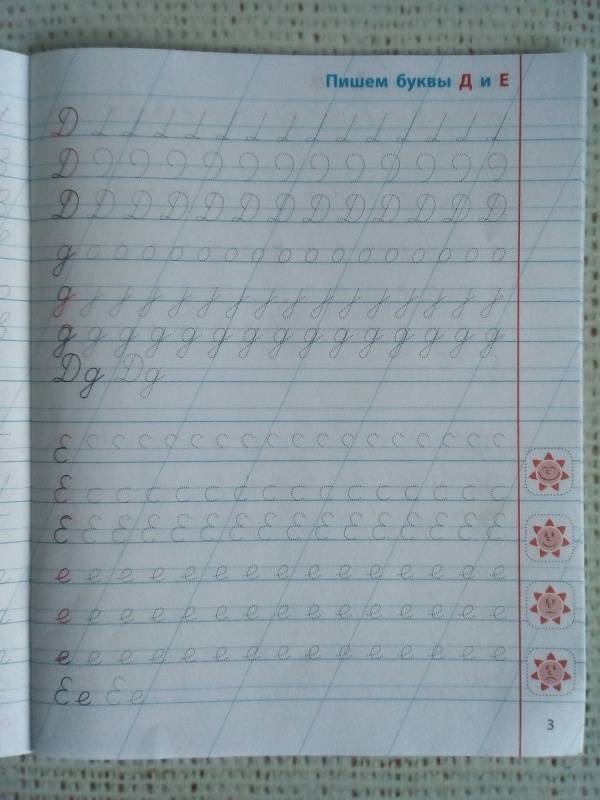 Пишем буквы Д и Е
Д
Д
Д Д Д Д Д Д Д Д Д Д Д Д Д
д о о о о о о о о о о о о о о о о
д
д д д д д д д д д д д д д д д
Дд Дд
Е с с с с с с с с с с с с с с с с с
Е с с с с с с с с с с с с с с с
Е Е Е Е Е Е Е Е Е Е Е Е Е Е Е Е
е е е е е е е е е е е е е е е
е е е е е е е е е е е е е е е
е е е е е е е е е е е е е е е
Ее Ее
3